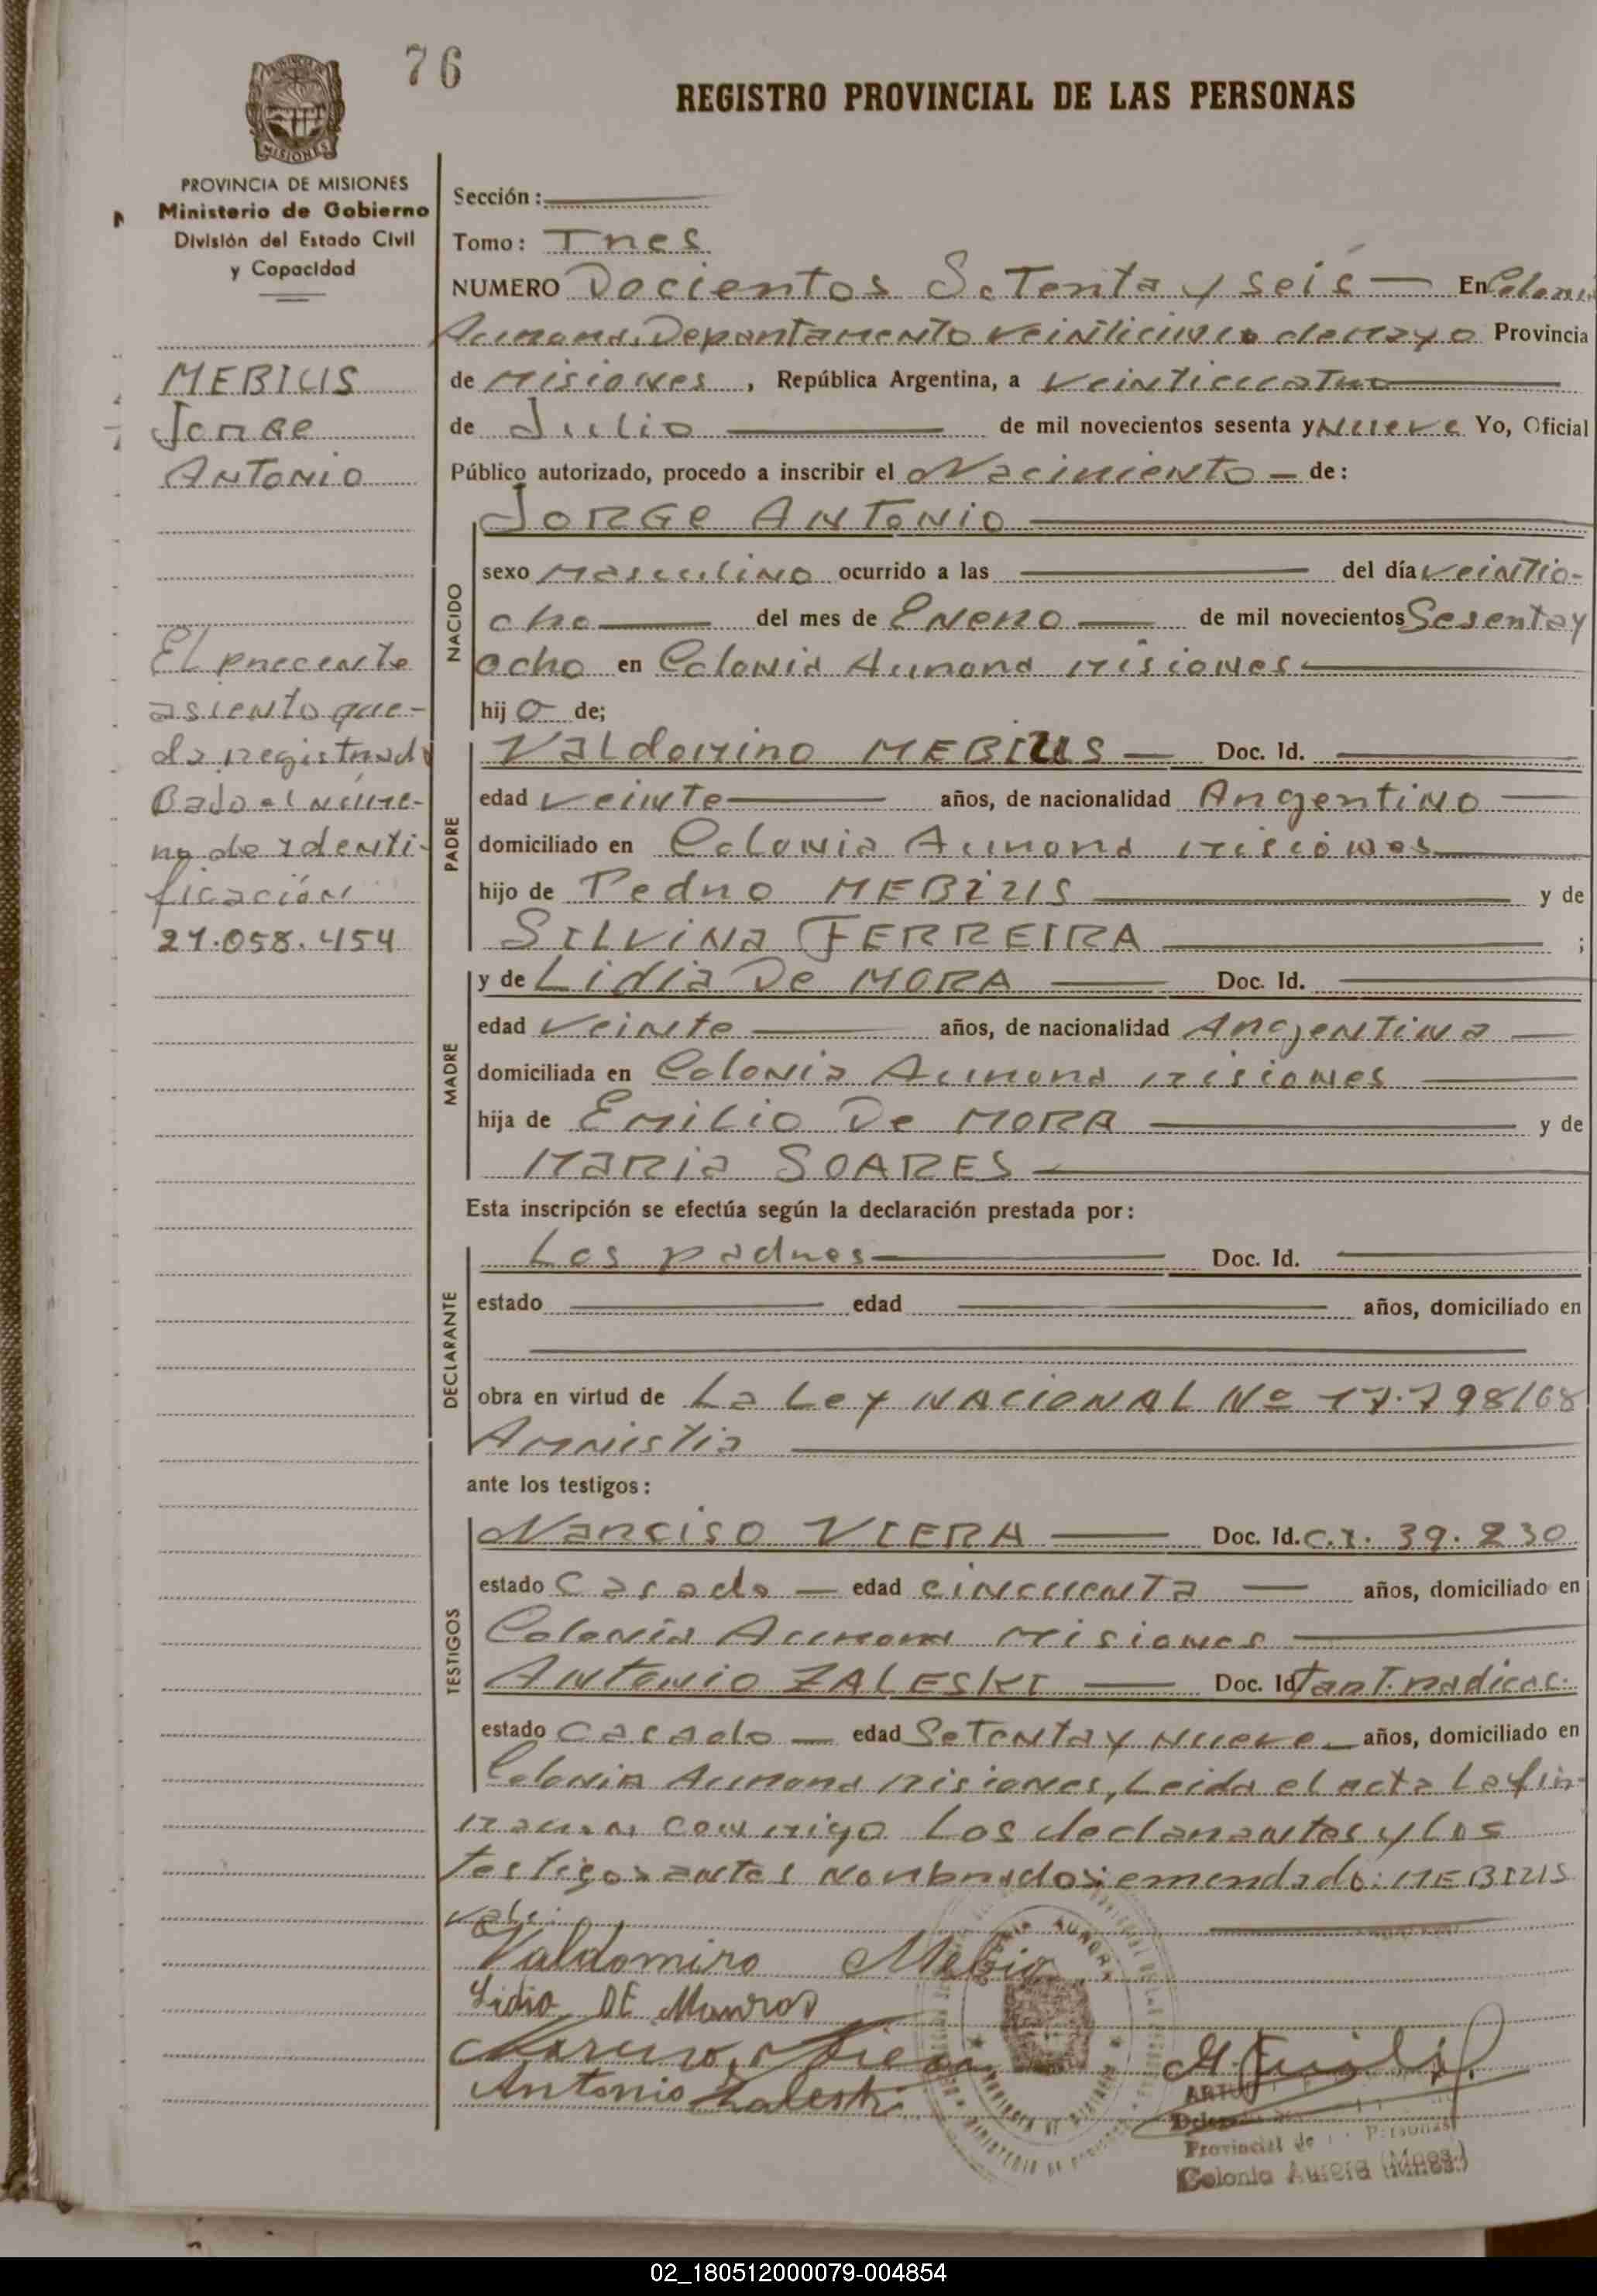 76
REGISTRO PROVINCIAL DE LAS PERSONAS
MISIONES
PROVINCIA DE MISIONES
Ministerio de Gobierno
División del Estado Civil
y Capacidad
MEBIUS
Jorge
ANTONIO
El precente
asiento que-
da registrado
Bado el núme-
ro de Identi-
ficación
21.058.454
Sección :
Tomo : Tres
NUMERO Docientos SeTenta y seis En Colonia
Aurora, Departamento Veinticinco de Mayo Provincia
de Misiones , República Argentina, a Veinticuatro
de Julio de mil novecientos sesenta y Nueve Yo, Oficial
Público autorizado, procedo a inscribir el Nacimiento de :
JORGE ANTONIO
NACIDO
sexo Masculino ocurrido a las del día veintio-
cho del mes de ENERO de mil novecientos Sesenta y
ocho en Colonia Aurora Misiones
hij o de;
PADRE
Valdomiro MEBIUS Doc. Id.
edad veinte años, de nacionalidad Argentino
domiciliado en Colonia Aurora Misiones
hijo de Pedro MEBIUS y de
SILVINA FERREIRA ;
MADRE
y de Lidia De MORA Doc. Id.
edad Veinte años, de nacionalidad Argentina
domiciliada en Colonia Aurora Misiones
hija de Emilio De MORA y de
MARIA SOARES
Esta inscripción se efectúa según la declaración prestada por :
DECLARANTE
Los padres Doc. Id.
estado edad años, domiciliado en
obra en virtud de La Ley NACIONAL Nº 17.798/68
Amnistia
ante los testigos :
TESTIGOS
Narciso VIERA Doc. Id. C.I. 39.230
estado Casado edad cincuenta años, domiciliado en
Colonia Aurora Misiones
Antonio ZALESKI Doc. Id Tarj. radicac.
estado Casado edad Setenta y Nueve años, domiciliado en
Colonia Aurora Misiones, Leida el acta La fir-
maron conmigo Los declarantes y Los
testigos antes nonbrados: emendado: MEBIUS
vale:
Valdomiro Mebio
Lidia DE
Narciso Viera
Antonio Zaleski
Provincial de Personas
Colonia Aurora (Mnes.)
02_180512000079-004854